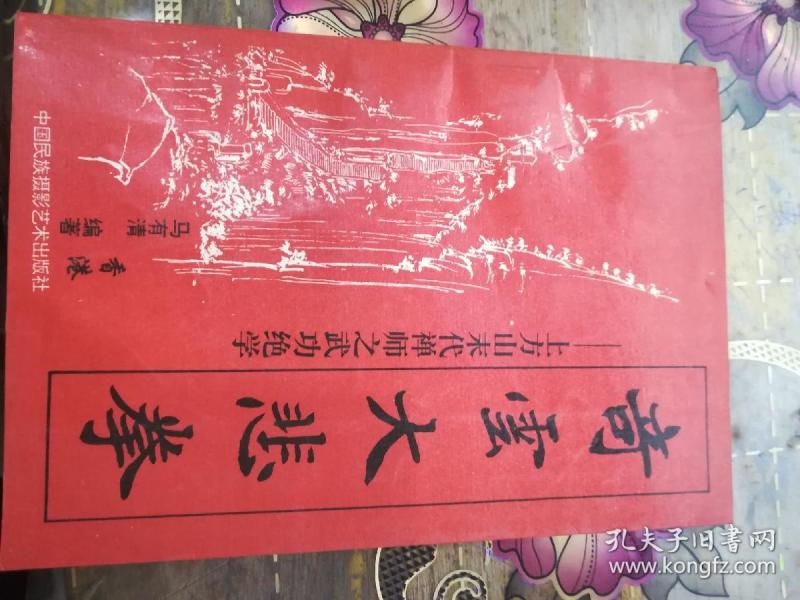 竒雲大悲拳
——上方山末代禅师之武功绝学
香港
马有清 编著
中国民族摄影艺术出版社
孔夫子旧书网
www.kongfz.com